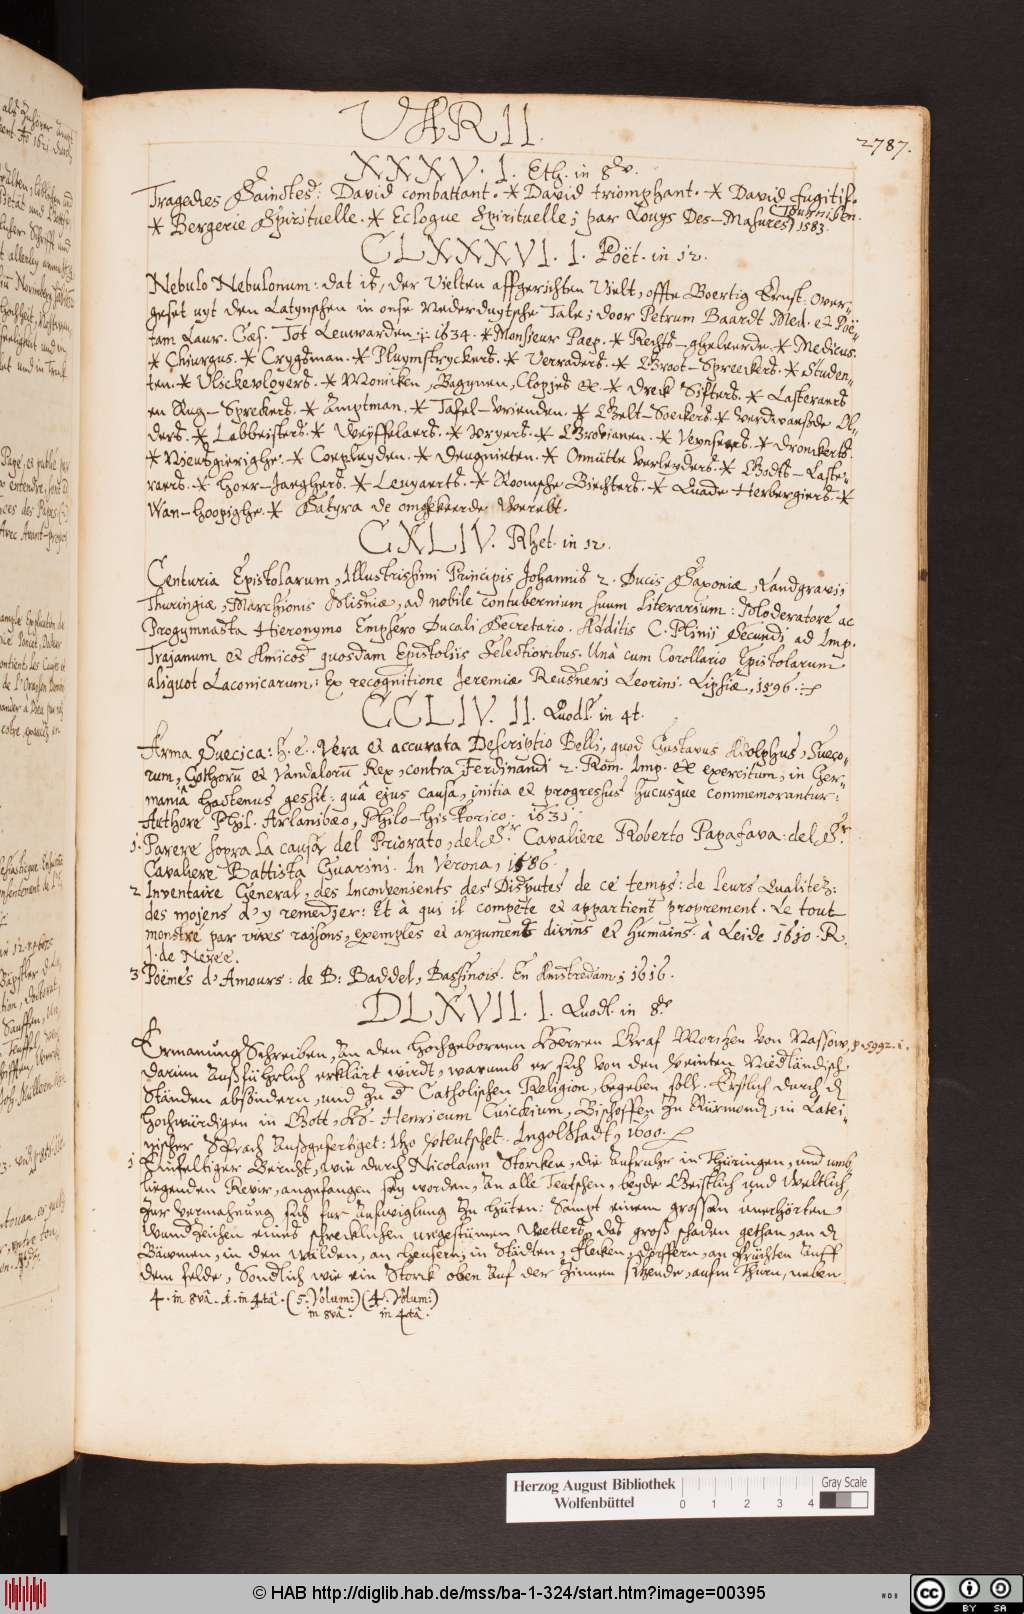 VARII.
2787.
XXXV. 1. Eth. in 8vo.
Tragedies Sainctes: David combattant. * David triomphant. * David fugitif.
* Bergerie Spirituelle. * Eclogue Spirituelle; par Louys Des-Masures 1583.
CLXXXVI. 1. Poët. in 12.
Nebulo Nebulonum: dat is, der Vielten affgerichten Vielt, offte Boertig Ernst: over-
geset uyt den Latynschen in onse Nederduytsche Tale; door Petrum Baardt Med. et Poë-
tam Laur. Cæs. Tot Leuwarden 1634. * Monsieur Paep. * Rechts-gheleerde. * Medicus.
* Chirurgus. * Crygsman. * Pluymstryckers. * Verraders. * Groot-Spreeckers. * Studen-
ten. * Monicken, Bagynen, Clopjes etc. * Dreck Sifters. * Lasteraers
en Rug-Sprekers. * Amptman. * Tafel-vrienden. * Gelt-Soeckers. *
ders. * Labbeisters. * Weyffelaers. * Vryers. * Grobianen. * Veynsers. * Dronckerts.
* Nieusgierighe. * Coepluyden. * Deugnieten. * Onnutte verleyders. * Godts-Laste-
raers. * Hoer-Jaeghers. * Leuyaerts. * Roomsche Biechters. * Quade Herbergiers. *
Wan-hoopighe. * Satyra de omgekeerde Werelt.
CXLIV. Rhet. in 12.
Centuria Epistolarum, Illustrissimi Principis Johannis 2. Ducis Saxoniæ, Landgravii
Thuringiæ, Marchionis Misniæ, ad nobile contubernium suum literarium: Moderatore ac
Progymnasta Hieronymo Emsero Ducali Secretario. Additis C. Plinii Secundi ad Imp.
Trajanum et Amicos quosdam Epistolis Selectioribus. Una cum Corollario Epistolarum
aliquot Laconicarum: Ex recognitione Jeremiæ Reusneri Leorini. Lipsiæ, 1596.
CCLIV. 11. Quodl. in 4t.
Arma Suecica: h. e. Vera et accurata Descriptio Belli, quod Gustavus Adolphus, Sueco-
rum, Gothorū et Vandalorū Rex, contra Ferdinandi 2. Rom. Imp. exercitum, in Ger-
maniâ hactenus gessit: quâ ejus causa, initia et progressus hucusque commemorantur:
Authore Phil. Arlanibæo, Philo-historico: 1631.
1. Parere sopra la causa del Priorato, del Sr. Cavaliere Roberto Papafava: del Sr.
Cavaliere Battista Guarini. In Verona, 1586.
2 Inventaire General, des Inconvenients des Disputes de ce temps: de leurs Qualitez:
des mojens d'y remedzer: Et à qui il compete et appartient proprement. Le tout
monstré par vives raisons, exemples et arguments divins et humains. à Leide 1610. R.
J. de Neree.
3 Poëmes d'Amours: de B: Baddel, Bassinois. En Amstredam; 1616.
DLXVII. 1. Quodl. in 8vo
Ermanung Schreiben, An den Hochgebornen Herren Graf Moritzen von Nassow, p. 5992. 1.
darinn Außführlich erklärt wirdt, warumb er sich von den Vneinten Niedländisch
Ständen absöndern, und zu d Catholischen Religion, begeben soll. Erstlich durch d
Hochwürdigen in Gott, Hr. Henricum Cuickium, Bischoffen zu Rürmond, in Latei-
nischer Sprach Außgefertiget: Itzo Verteutschet. Ingolstadt, 1600.
1 Einfeltiger Bericht, wie durch Nicolaum Storcken, die Aufruhr in Thüringen, und umb
liegenden Revir, angefangen sey worden, An alle Teutschen, beyde Geistlich und Weltlich,
zur vermahnung sich fur Aufwiglung zu hüten: Sampt einem grossen unerhörten
Wundzeichen eines schrecklichen ungestümen Wetters, das groß schaden gethan, an d
Bäwmen, in den Wälden, an Heusern, in Städten, Flecken, Dörffern, an Früchten Auff
dem felde, Sondlich wie ein Storck oben Auf der Zinnen sitzende, aufm Thurn, neben
4. in 8vâ. 1. in 4tâ. (5. Volum:) (4. Volum:)
in 8vâ. in 4tâ.
Herzog August Bibliothek
Wolfenbüttel
0 1 2 3 4
Gray Scale
© HAB http://diglib.hab.de/mss/ba-1-324/start.htm?image=00395
cc BY SA